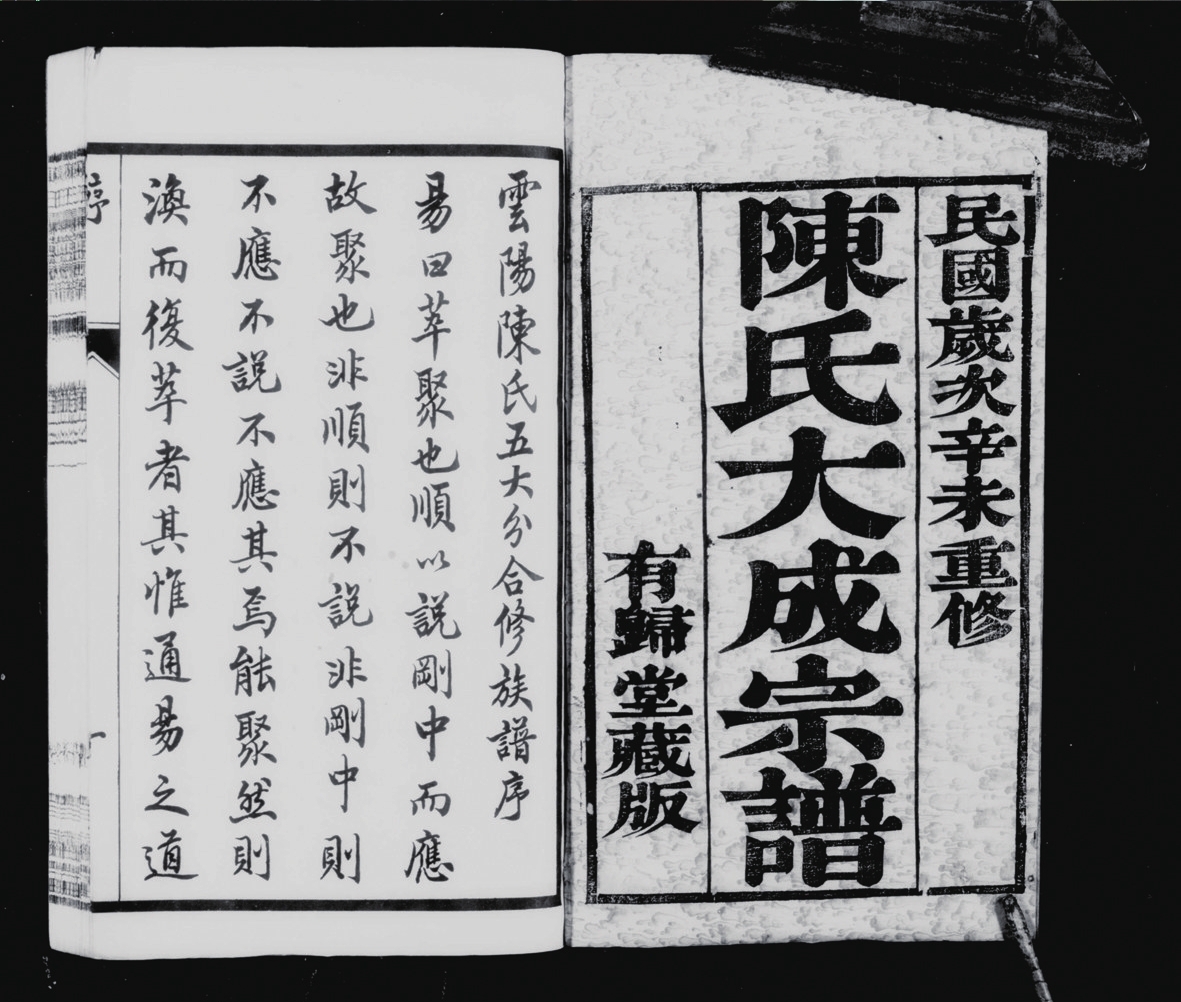 民國歲次辛未重修
陳氏大成宗譜
有歸堂藏版
雲陽陳氏五大分合修族譜序
易曰萃聚也順以説剛中而應
故聚也非順則不説非剛中則
不應不説不應其焉能聚然則
渙而復萃者其惟通易之道
序
一